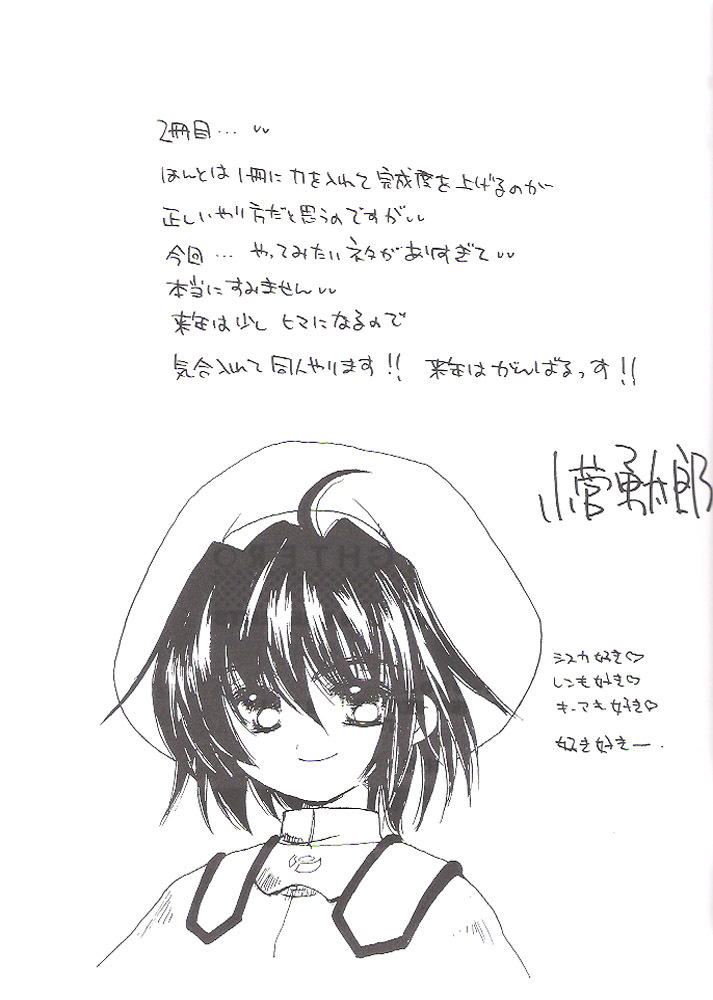 2冊目… 〃
ほんとは1冊に力を入れて完成度を上げるのが
正しいやり方だと思うのですが〃
今回… やってみたいネタがありすぎて〃
本当にすみません〃
来年は少し ヒマになるので
気合入れて同人やります!! 来年はがんばるっす!!
小菅勇太郎
シスカ好き♡
レンも好き♡
キーアも好き♡
好き好きー.
GHTERO